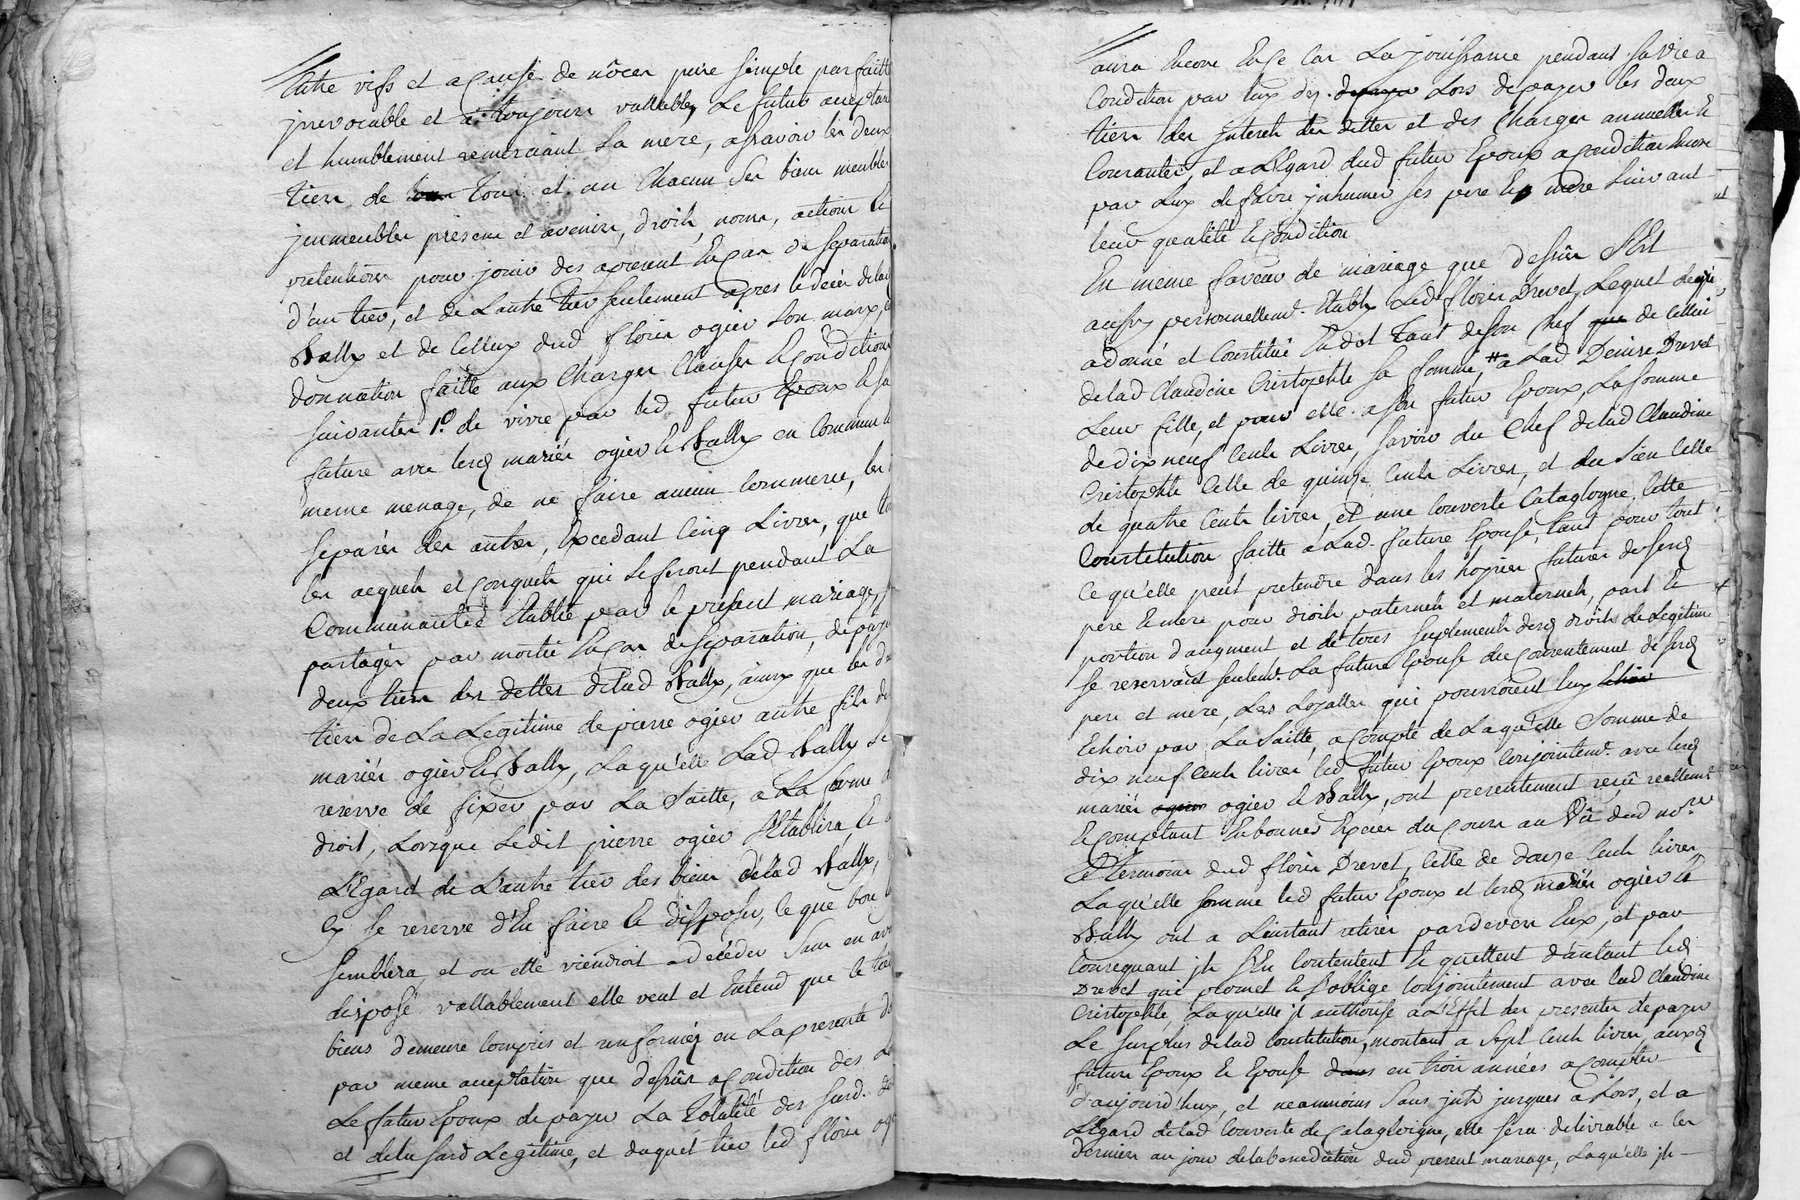 Entre vifs et a cause de nôces pure simple parfaitte
jrrevocable et a toujours vallable, Le futur acceptan
et humblement remerciant sa mere, asavoir les deux
tiers de tous et un chacun ses biens meubles
jmmeubles presens et avenirs, droits, noms, actions et
pretentions pour jouir des apresent En cas de separation
d'un tier, et de l'autre tier seulement apres le decés de lad
Bally et de celluy dud florin ogier son mary,
donnation faitte aux charges clauses et conditions
suivantes 1º. de vivre par led futur Epoux et sa
future avec lesd mariés ogier et Bally en commun
meme menage, de ne faire aucun commerce, les
separés des autres, Excedant cinq livres, que
les acquets et conquets qui se feront pendant La
communauté Etablie par le present mariage,
partagés par moitié En cas de separation, de payer
deux tiers des dettes delad Bally, ainsy que les d
tiers de La Legitime de pierre ogier autre fils d
mariés ogier et Bally, Laqu'elle Lad Bally se
reserve de fixer par La Suitte, a La forme d
droit, Lorsque ledit pierre ogier s'Etablira, Et a
L'Egard de L'autre tier des biens delad Bally,
Ey se reserve d'En faire Et disposer, Ce que bon
semblera, et ou elle viendroit a déceder sans en avoir
disposé vallablement elle veut et Entend que le tier
biens demeure compris et renfermés en La presente d
par meme acceptation que dessus a condition des
Le futur Epoux de payer La Totalité des susd. de
et delad susd Legitime, et duquel tier led florin ogi
aura Encore En ce cas La jouissance pendant sa vie a
condition par Luy des Lors de payer les deux
tiers des jnterets des dettes et des charges annuelles Et
Courantes, et a L'Egard dud futur Epoux a condition Encore
par Luy de faire jnhumer ses pere Et mere suivant
leur qualité Et condition
En meme faveur de mariage que dessus s'Est
aussy personnellemt. Etably Led florin Drevet, Lequel de gré
a donné et constitué En dot Tant de son chef que de celluy
delad Claudine Cristophle sa femme, a Lad Denise Drevet
Leur fille, et pour elle a son futur Epoux, La somme
de dix neuf cents Livres, savoir du chef delad Claudine
Cristophle celle de quinze cents Livres, et du sien celle
de quatre cents livres, et une couverte Catalogne, Cette
Constitution faitte a Lad. future Epouse, tant pour tout
ce qu'elle peut pretendre dans les hoiries futures de sesd
pere Et mere pour droits paternels et maternels, part Et
portion d'augment et de tous suplements desd droits de Legitime
se reservant seulemt. La future Epouse du consentement de sesd
pere et mere, Les Loyalles qui pourroient luy
Echoir par La suitte, a compte de Laqu'elle somme de
dix neuf cents livres led futur Epoux conjointemt. avec lesd
mariés ogier Et Bally, ont presentement reçû reellemt.
Et comptant En bonnes Especes du cours au Vû dud nore.
Et Temoins dud florin Drevet, celle de douze cents livres
Laqu'elle somme led futur Epoux et lesd mariés ogier Et
Bally ont a L'instant retirés pardevers Eux, et par
consequant jls s'En contentent Et quittent d'autant led
Drevet qui promet Et s'oblige conjointement avec lad Claudine
Cristophle, Laqu'elle jl authorise a L'Effet des presentes de payer
Le surplus delad constitution, montant a sept cents livres, auxd
futurs Epoux Et Epouse en trois années a compter
d'aujourd'huy, et neanmoins sans jnts jusques a Lors, et a
L'Egard delad couverte de Catalogne, elle sera delivrable a ces
derniers au jour de la benediction dud present mariage, Laqu'elle jls